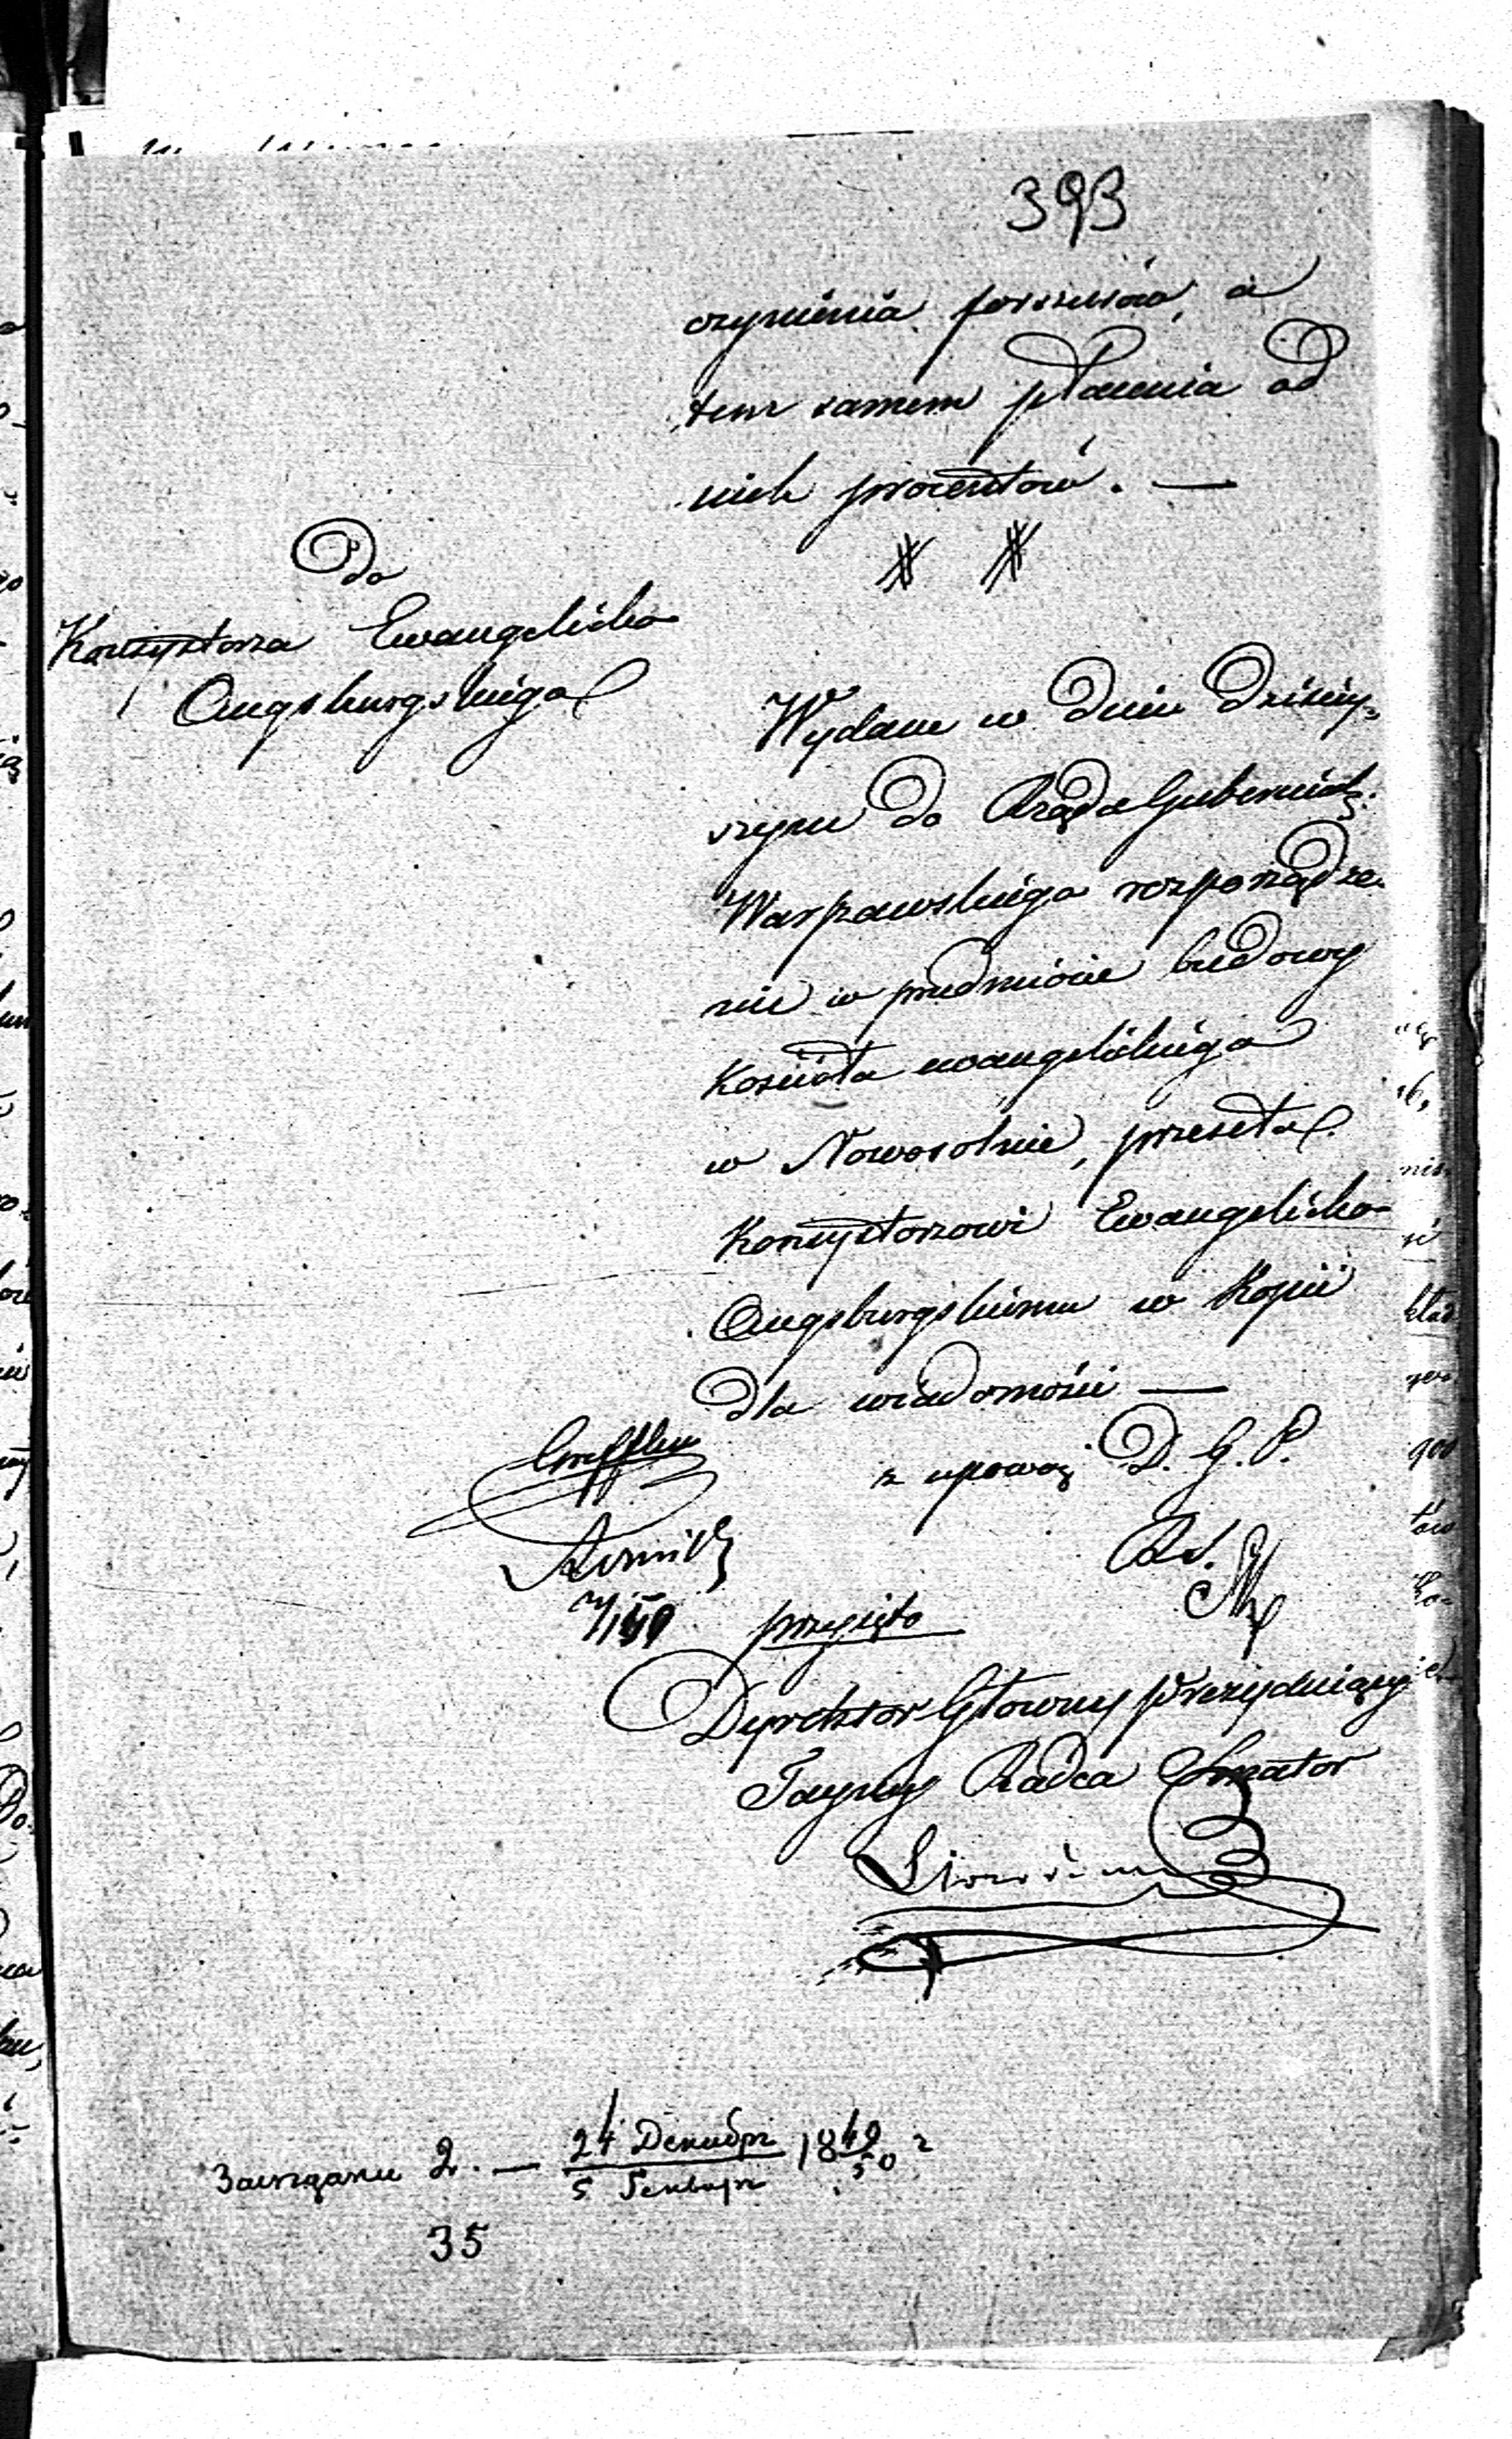 393
czynienia forszusów, a
tem samem płacenia od
nich procentów. —
Do
Konsystorza Ewangelicko
Augsburgskiego
Wydane w dniu dzisiey=
szym do Rządu Gubernial:
Warszawskiego rozporządze=
nie w przedmiocie budowy
Kościoła ewangelickiego
w Nowosolnie, przesyła
Konsystorzowi Ewangelicko=
Augsburgskiemu w Kopii
dla wiadomości —
z upoważ D. G. P.
przyjęto
Dyrektor Główny Prezyduiący
Tayny Radca Senator
2. — 24 Декабря 1849
5 Генваря 50 г
35